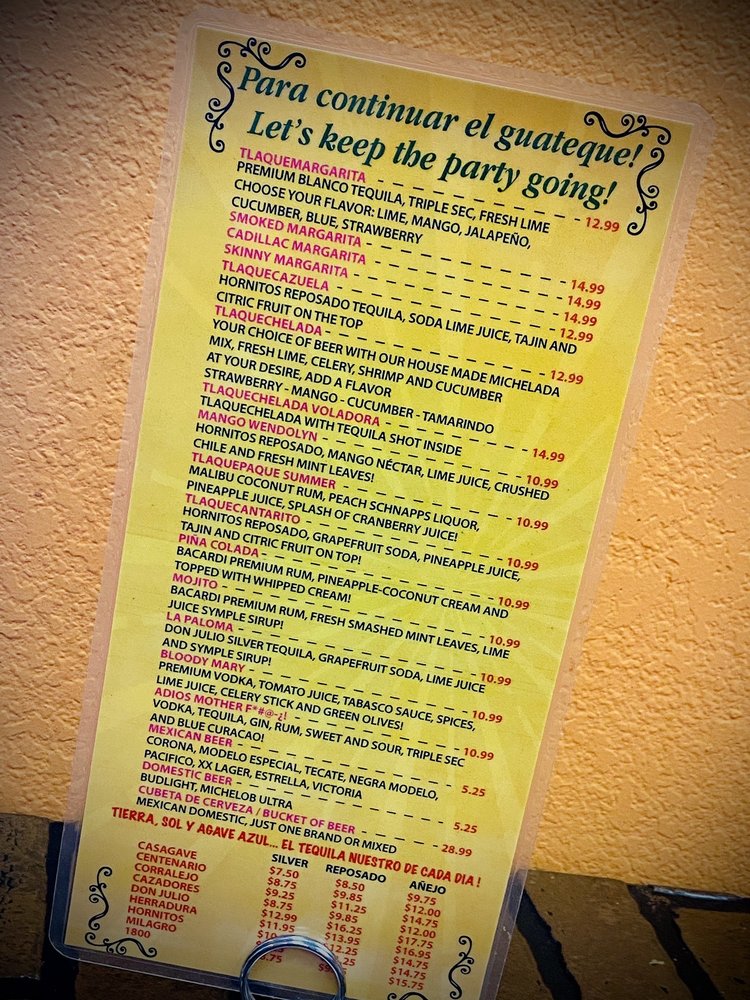 Para continuar el guateque!
Let's keep the party going!
TLAQUEMARGARITA - - - - - - - - - - - - - - - 12.99
PREMIUM BLANCO TEQUILA, TRIPLE SEC, FRESH LIME
CHOOSE YOUR FLAVOR: LIME, MANGO, JALAPEÑO,
CUCUMBER, BLUE, STRAWBERRY
SMOKED MARGARITA - - - - - - - - - - - - - - - 14.99
CADILLAC MARGARITA - - - - - - - - - - - - - - - 14.99
SKINNY MARGARITA - - - - - - - - - - - - - - - 14.99
TLAQUECAZUELA - - - - - - - - - - - - - - - 12.99
HORNITOS REPOSADO TEQUILA, SODA LIME JUICE, TAJIN AND
CITRIC FRUIT ON THE TOP
TLAQUECHELADA - - - - - - - - - - - - - - - 12.99
YOUR CHOICE OF BEER WITH OUR HOUSE MADE MICHELADA
MIX, FRESH LIME, CELERY, SHRIMP AND CUCUMBER
AT YOUR DESIRE, ADD A FLAVOR
STRAWBERRY - MANGO - CUCUMBER - TAMARINDO
TLAQUECHELADA VOLADORA - - - - - - - - - - - - 14.99
TLAQUECHELADA WITH TEQUILA SHOT INSIDE
MANGO WENDOLYN - - - - - - - - - - - - - - - 10.99
HORNITOS REPOSADO, MANGO NÉCTAR, LIME JUICE, CRUSHED
CHILE AND FRESH MINT LEAVES!
TLAQUEPAQUE SUMMER - - - - - - - - - - - - - - - 10.99
MALIBU COCONUT RUM, PEACH SCHNAPPS LIQUOR,
PINEAPPLE JUICE, SPLASH OF CRANBERRY JUICE!
TLAQUECANTARITO - - - - - - - - - - - - - - - 10.99
HORNITOS REPOSADO, GRAPEFRUIT SODA, PINEAPPLE JUICE,
TAJIN AND CITRIC FRUIT ON TOP!
PIÑA COLADA - - - - - - - - - - - - - - - 10.99
BACARDI PREMIUM RUM, PINEAPPLE-COCONUT CREAM AND
TOPPED WITH WHIPPED CREAM!
MOJITO - - - - - - - - - - - - - - - 10.99
BACARDI PREMIUM RUM, FRESH SMASHED MINT LEAVES, LIME
JUICE SYMPLE SIRUP!
LA PALOMA - - - - - - - - - - - - - - - 10.99
DON JULIO SILVER TEQUILA, GRAPEFRUIT SODA, LIME JUICE
AND SYMPLE SIRUP!
BLOODY MARY - - - - - - - - - - - - - - - 10.99
PREMIUM VODKA, TOMATO JUICE, TABASCO SAUCE, SPICES,
LIME JUICE, CELERY STICK AND GREEN OLIVES!
ADIOS MOTHER F*#@-¿! - - - - - - - - - - - - 10.99
VODKA, TEQUILA, GIN, RUM, SWEET AND SOUR, TRIPLE SEC
AND BLUE CURACAO!
MEXICAN BEER - - - - - - - - - - - - - - - 5.25
CORONA, MODELO ESPECIAL, TECATE, NEGRA MODELO,
PACIFICO, XX LAGER, ESTRELLA, VICTORIA
DOMESTIC BEER - - - - - - - - - - - - - - - 5.25
BUDLIGHT, MICHELOB ULTRA
CUBETA DE CERVEZA / BUCKET OF BEER - - - - - - - 28.99
MEXICAN DOMESTIC, JUST ONE BRAND OR MIXED
TIERRA, SOL Y AGAVE AZUL... EL TEQUILA NUESTRO DE CADA DIA!
SILVER REPOSADO AÑEJO
CASAGAVE $7.50 $8.50 $9.75
CENTENARIO $8.75 $9.85 $12.00
CORRALEJO $9.25 $11.25 $14.75
CAZADORES $8.75 $9.85 $12.00
DON JULIO $12.99 $16.25 $17.75
HERRADURA $11.95 $13.95 $16.95
HORNITOS $14.75
MILAGRO $14.75
1800 $15.75